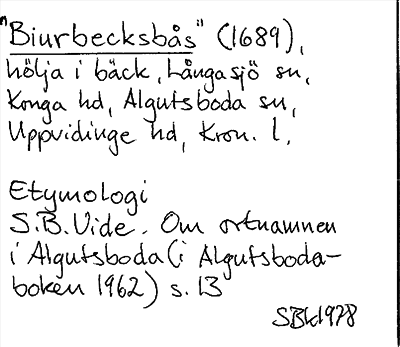 "Biurbecksbås" (1689),
hölja i bäck, Långasjö sn,
Konga hd, Algutsboda sn,
Uppvidinge hd, Kron. l.
Etymologi
S.B. Vide. Om ortnamnen
i Algutsboda (i Algutsboda-
boken 1962) s. 13
SBk1978